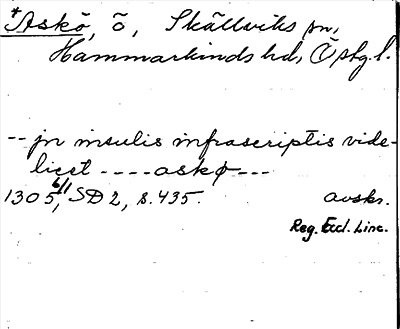 *Askö, ö, Skällviks sn,
Hammarkinds hd, Östg.l.
-- jn insulis infrascriptis vide-
licet ---- askø ---
1305 6/1, SD 2, s. 435. avskr.
Reg. Eccl. Linc.